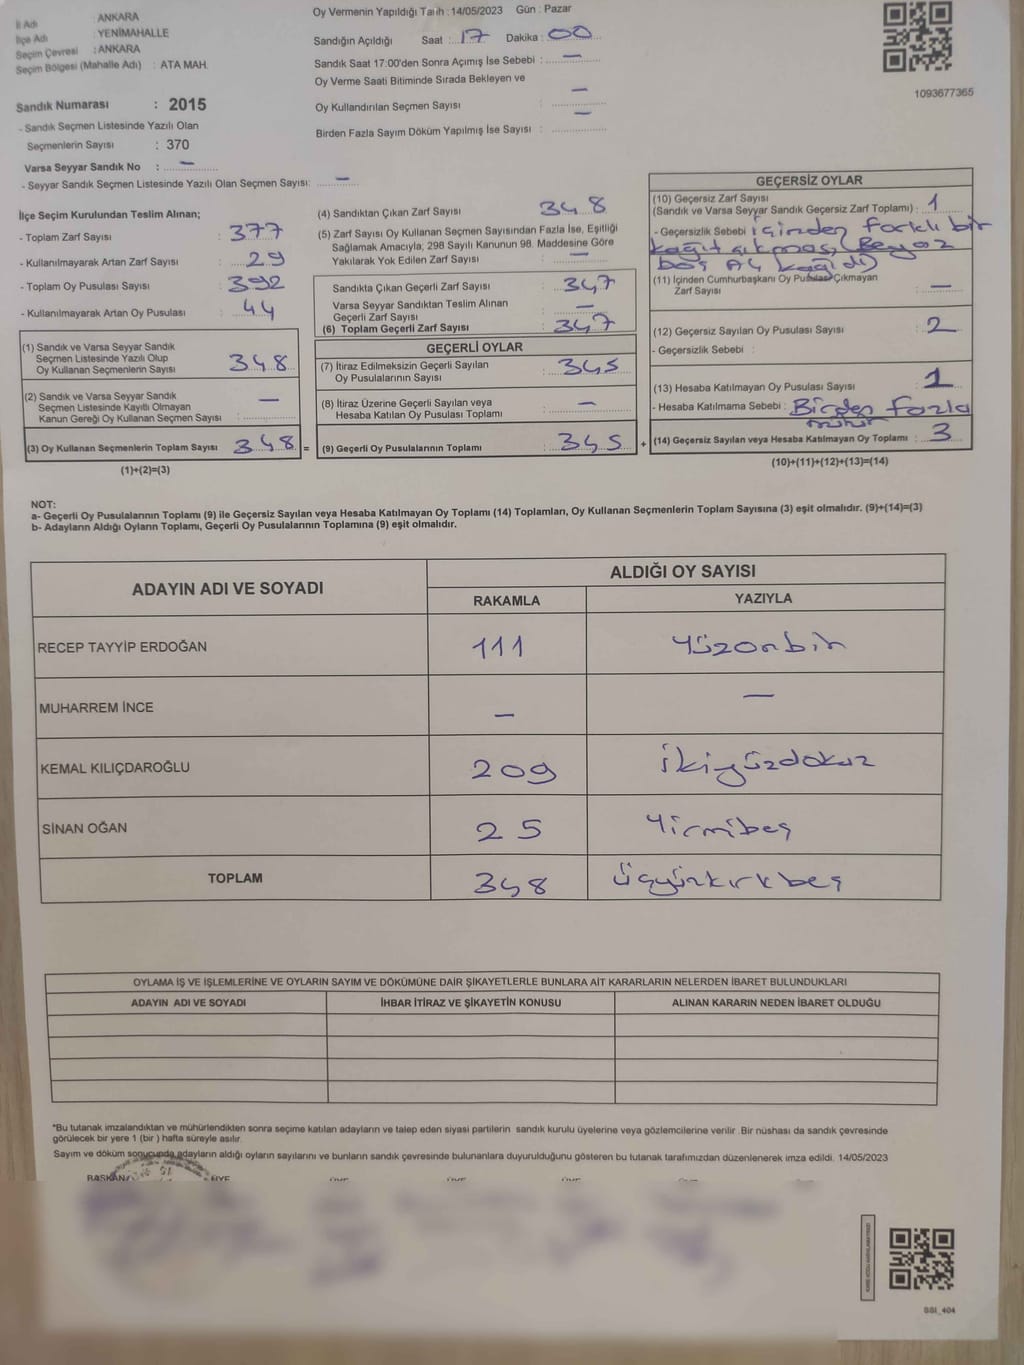 İl Adı : ANKARA
İlçe Adı : YENİMAHALLE
Seçim Çevresi : ANKARA
Seçim Bölgesi (Mahalle Adı) : ATA MAH.
Sandık Numarası : 2015
- Sandık Seçmen Listesinde Yazılı Olan
Seçmenlerin Sayısı : 370
Varsa Seyyar Sandık No : —
- Seyyar Sandık Seçmen Listesinde Yazılı Olan Seçmen Sayısı: —
Oy Vermenin Yapıldığı Tarih : 14/05/2023 Gün : Pazar
Sandığın Açıldığı Saat : 17 Dakika : 00
Sandık Saat 17:00'den Sonra Açımış İse Sebebi : —
Oy Verme Saati Bitiminde Sırada Bekleyen ve
Oy Kullandırılan Seçmen Sayısı : —
Birden Fazla Sayım Döküm Yapılmış İse Sayısı : —
1093677365
İlçe Seçim Kurulundan Teslim Alınan;
- Toplam Zarf Sayısı : 377
- Kullanılmayarak Artan Zarf Sayısı : 29
- Toplam Oy Pusulası Sayısı : 392
- Kullanılmayarak Artan Oy Pusulası : 44
(1) Sandık ve Varsa Seyyar Sandık
Seçmen Listesinde Yazılı Olup
Oy Kullanan Seçmenlerin Sayısı : 348
(2) Sandık ve Varsa Seyyar Sandık
Seçmen Listesinde Kayıtlı Olmayan
Kanun Gereği Oy Kullanan Seçmen Sayısı : —
(3) Oy Kullanan Seçmenlerin Toplam Sayısı 348 =
(1)+(2)=(3)
(4) Sandıktan Çıkan Zarf Sayısı 348
(5) Zarf Sayısı Oy Kullanan Seçmen Sayısından Fazla İse, Eşitliği
Sağlamak Amacıyla, 298 Sayılı Kanunun 98. Maddesine Göre
Yakılarak Yok Edilen Zarf Sayısı : —
Sandıkta Çıkan Geçerli Zarf Sayısı : 347
Varsa Seyyar Sandıktan Teslim Alınan
Geçerli Zarf Sayısı : —
(6) Toplam Geçerli Zarf Sayısı : 347
GEÇERLİ OYLAR
(7) İtiraz Edilmeksizin Geçerli Sayılan
Oy Pusulalarının Sayısı : 345
(8) İtiraz Üzerine Geçerli Sayılan veya
Hesaba Katılan Oy Pusulası Toplamı : —
(9) Geçerli Oy Pusulalarının Toplamı : 345 +
GEÇERSİZ OYLAR
(10) Geçersiz Zarf Sayısı
(Sandık ve Varsa Seyyar Sandık Geçersiz Zarf Toplamı) : 1
- Geçersizlik Sebebi : içinden farklı bir
kağıt çıkması (Beyaz
boş A4 kağıdı)
(11) İçinden Cumhurbaşkanı Oy Pusulası Çıkmayan
Zarf Sayısı : —
(12) Geçersiz Sayılan Oy Pusulası Sayısı : 2
- Geçersizlik Sebebi :
(13) Hesaba Katılmayan Oy Pusulası Sayısı : 1
- Hesaba Katılmama Sebebi : Birden fazla
mühür
(14) Geçersiz Sayılan veya Hesaba Katılmayan Oy Toplamı : 3
(10)+(11)+(12)+(13)=(14)
NOT:
a- Geçerli Oy Pusulalarının Toplamı (9) ile Geçersiz Sayılan veya Hesaba Katılmayan Oy Toplamı (14) Toplamları, Oy Kullanan Seçmenlerin Toplam Sayısına (3) eşit olmalıdır. (9)+(14)=(3)
b- Adayların Aldığı Oyların Toplamı, Geçerli Oy Pusulalarının Toplamına (9) eşit olmalıdır.
ADAYIN ADI VE SOYADI
ALDIĞI OY SAYISI
RAKAMLA YAZIYLA
RECEP TAYYİP ERDOĞAN 111 Yüzonbir
MUHARREM İNCE — —
KEMAL KILIÇDAROĞLU 209 ikiyüzdokuz
SİNAN OĞAN 25 Yirmibeş
TOPLAM 348 üçyüzkırkbeş
OYLAMA İŞ VE İŞLEMLERİNE VE OYLARIN SAYIM VE DÖKÜMÜNE DAİR ŞİKAYETLERLE BUNLARA AİT KARARLARIN NELERDEN İBARET BULUNDUKLARI
ADAYIN ADI VE SOYADI İHBAR İTİRAZ VE ŞİKAYETİN KONUSU ALINAN KARARIN NEDEN İBARET OLDUĞU
*Bu tutanak imzalandıktan ve mühürlendikten sonra seçime katılan adayların ve talep eden siyasi partilerin sandık kurulu üyelerine veya gözlemcilerine verilir. Bir nüshası da sandık çevresinde
görülecek bir yere 1 (bir ) hafta süreyle asılır.
Sayım ve döküm sonucunda adayların aldığı oyların sayılarını ve bunların sandık çevresinde bulunanlara duyurulduğunu gösteren bu tutanak tarafımızdan düzenlenerek imza edildi. 14/05/2023